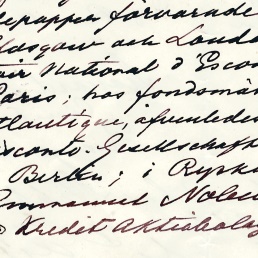 depapper förvarade
Glasgow och Londo
oir National d'Escom
Paris; hos fondsmäk
tlantique, äfvenledes
isconto-Gesellschaft
Berlin; i Ryska
Emmanuel Nobel
Kredit Aktiebolag